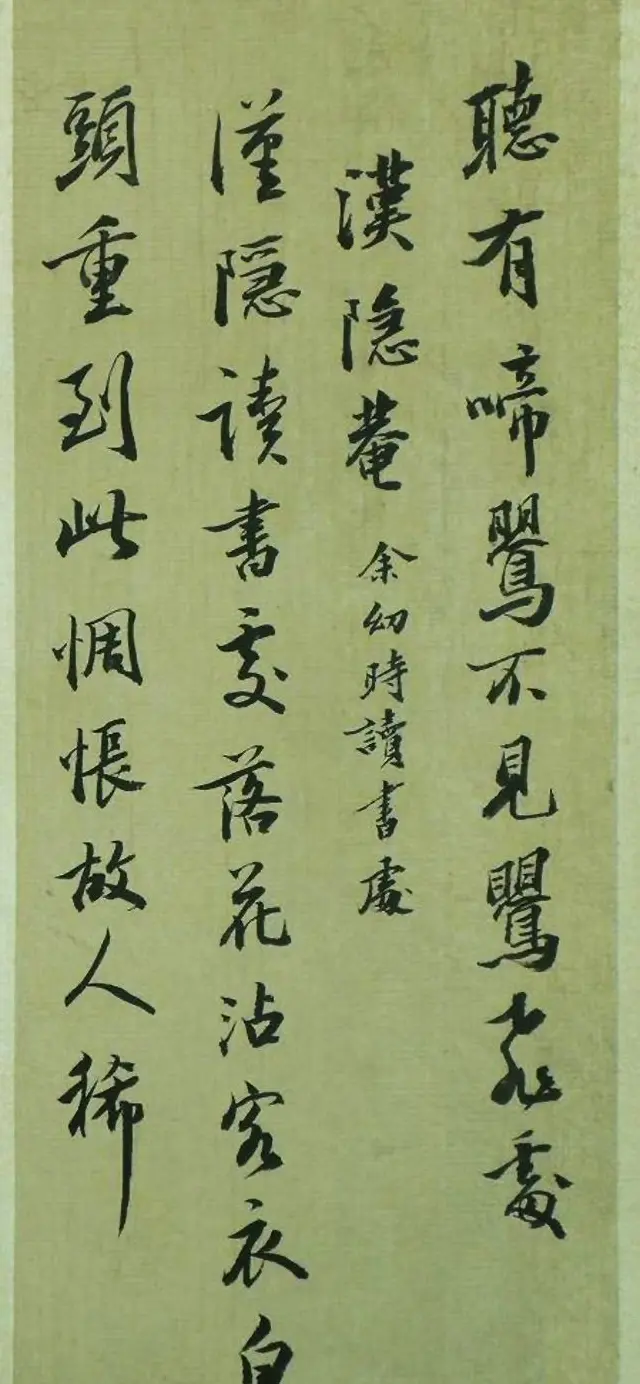 聽有啼鸎不見鸎飛處
漢隱菴 余幼時讀書處
漢隱讀書處落花沾客衣白
頭重到此惆悵故人稀